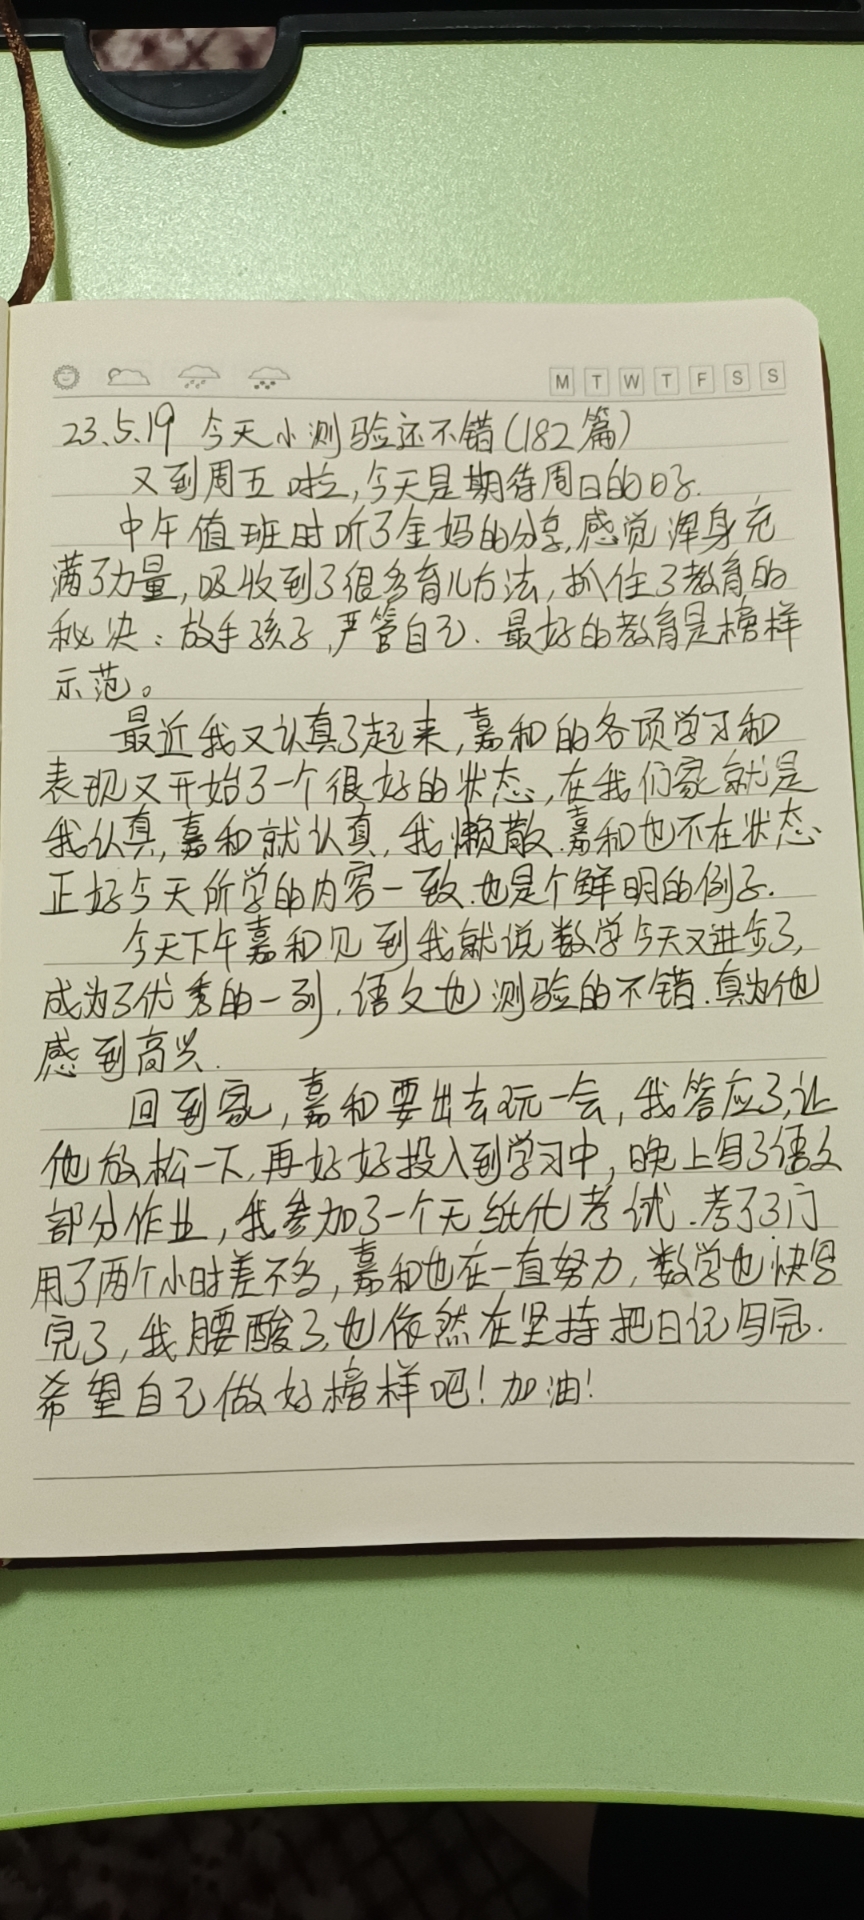 M T W T F S S
23.5.19 今天小测验还不错(182篇)
又到周五啦,今天是期待周日的日子.
中午值班时听了金妈的分享,感觉浑身充
满了力量,吸收到了很多育儿方法,抓住了教育的
秘决:放手孩子,严管自己.最好的教育是榜样
示范。
最近我又认真了起来,嘉和的各项学习和
表现又开始了一个很好的状态,在我们家就是
我认真,嘉和就认真,我懒散.嘉和也不在状态.
正好今天所学的内容一致.也是个鲜明的例子.
今天下午嘉和见到我就说数学今天又进步了,
成为了优秀的一列.语文也测验的不错.真为他
感到高兴.
回到家,嘉和要出去玩一会,我答应了,让
他放松一下,再好好投入到学习中,晚上写了语文
部分作业,我参加了一个无纸化考试.考了3门
用了两个小时差不多,嘉和也在一直努力,数学也快写
完了,我腰酸了,也依然在坚持把日记写完.
希望自己做好榜样吧!加油!